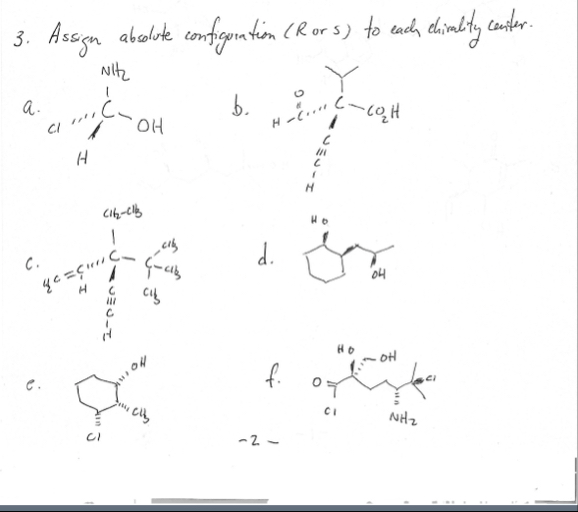 3. Assign absolute configuration (R or S) to each chirality center.
a.
NH2
Cl C OH
H
b.
O
H-C C-CO2H
C
C
H
c.
CH2-CH3
H2C=C C-C CH3
H CH3
C CH3
C
H
d.
HO
OH
e.
OH
CH3
Cl
f.
HO OH
O Cl
Cl NH2
-2-